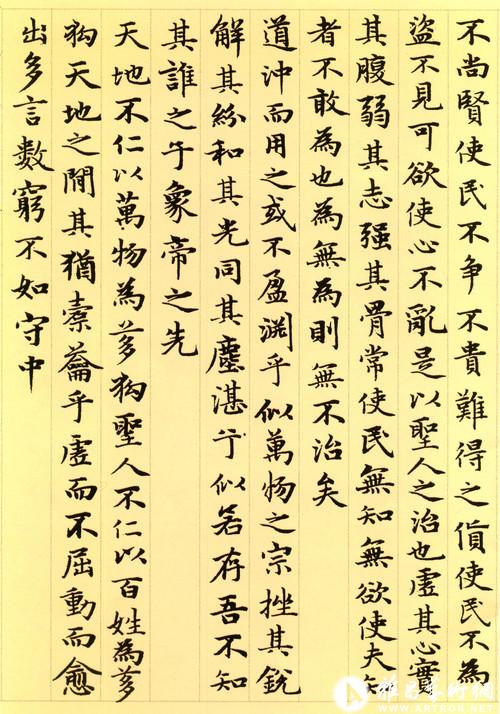 不尚賢使民不争不貴難得之貨使民不為
盜不見可欲使心不亂是以聖人之治也虛其心實
其腹弱其志强其骨常使民無知無欲使夫知
者不敢為也為無為則無不治矣
道沖而用之或不盈淵乎似萬物之宗挫其銳
解其紛和其光同其塵湛兮似若存吾不知
其誰之子象帝之先
天地不仁以萬物為芻狗聖人不仁以百姓為芻
狗天地之間其猶橐籥乎虛而不屈動而愈
出多言數窮不如守中
雅昌藝術網
WWW.ARTRON.NET